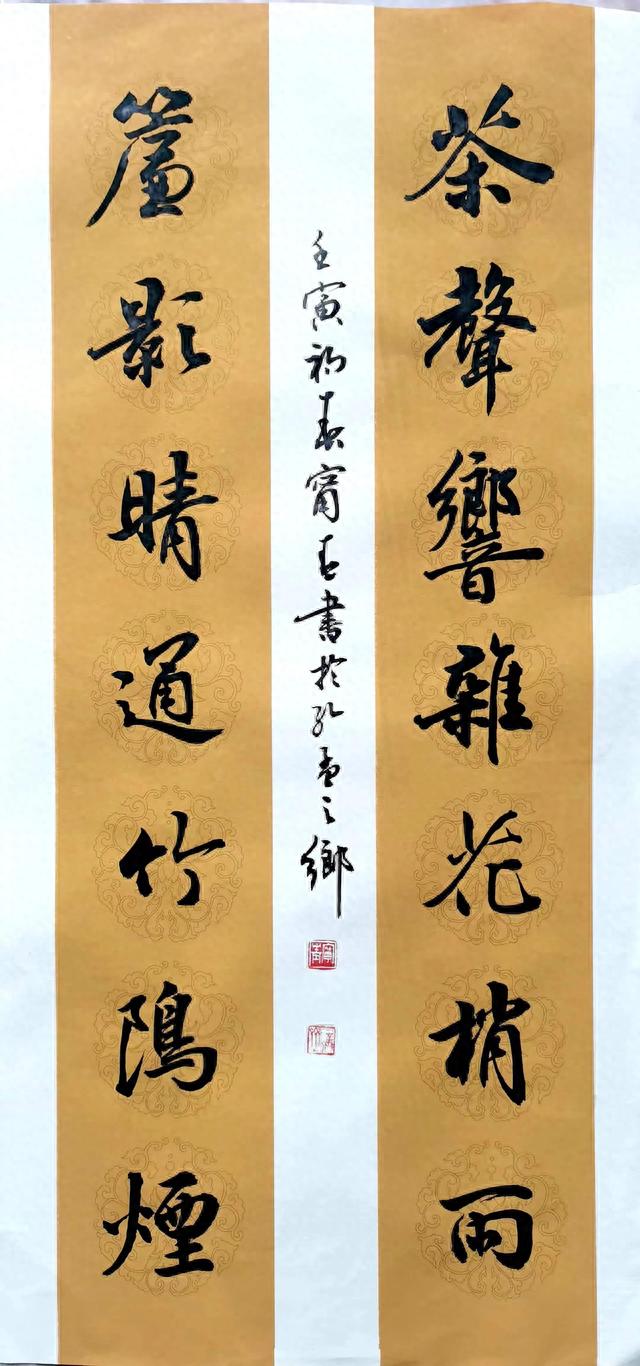 茶聲響雜花梢雨
簾影晴通竹隖煙
壬寅初春甯書於孔孟之鄉